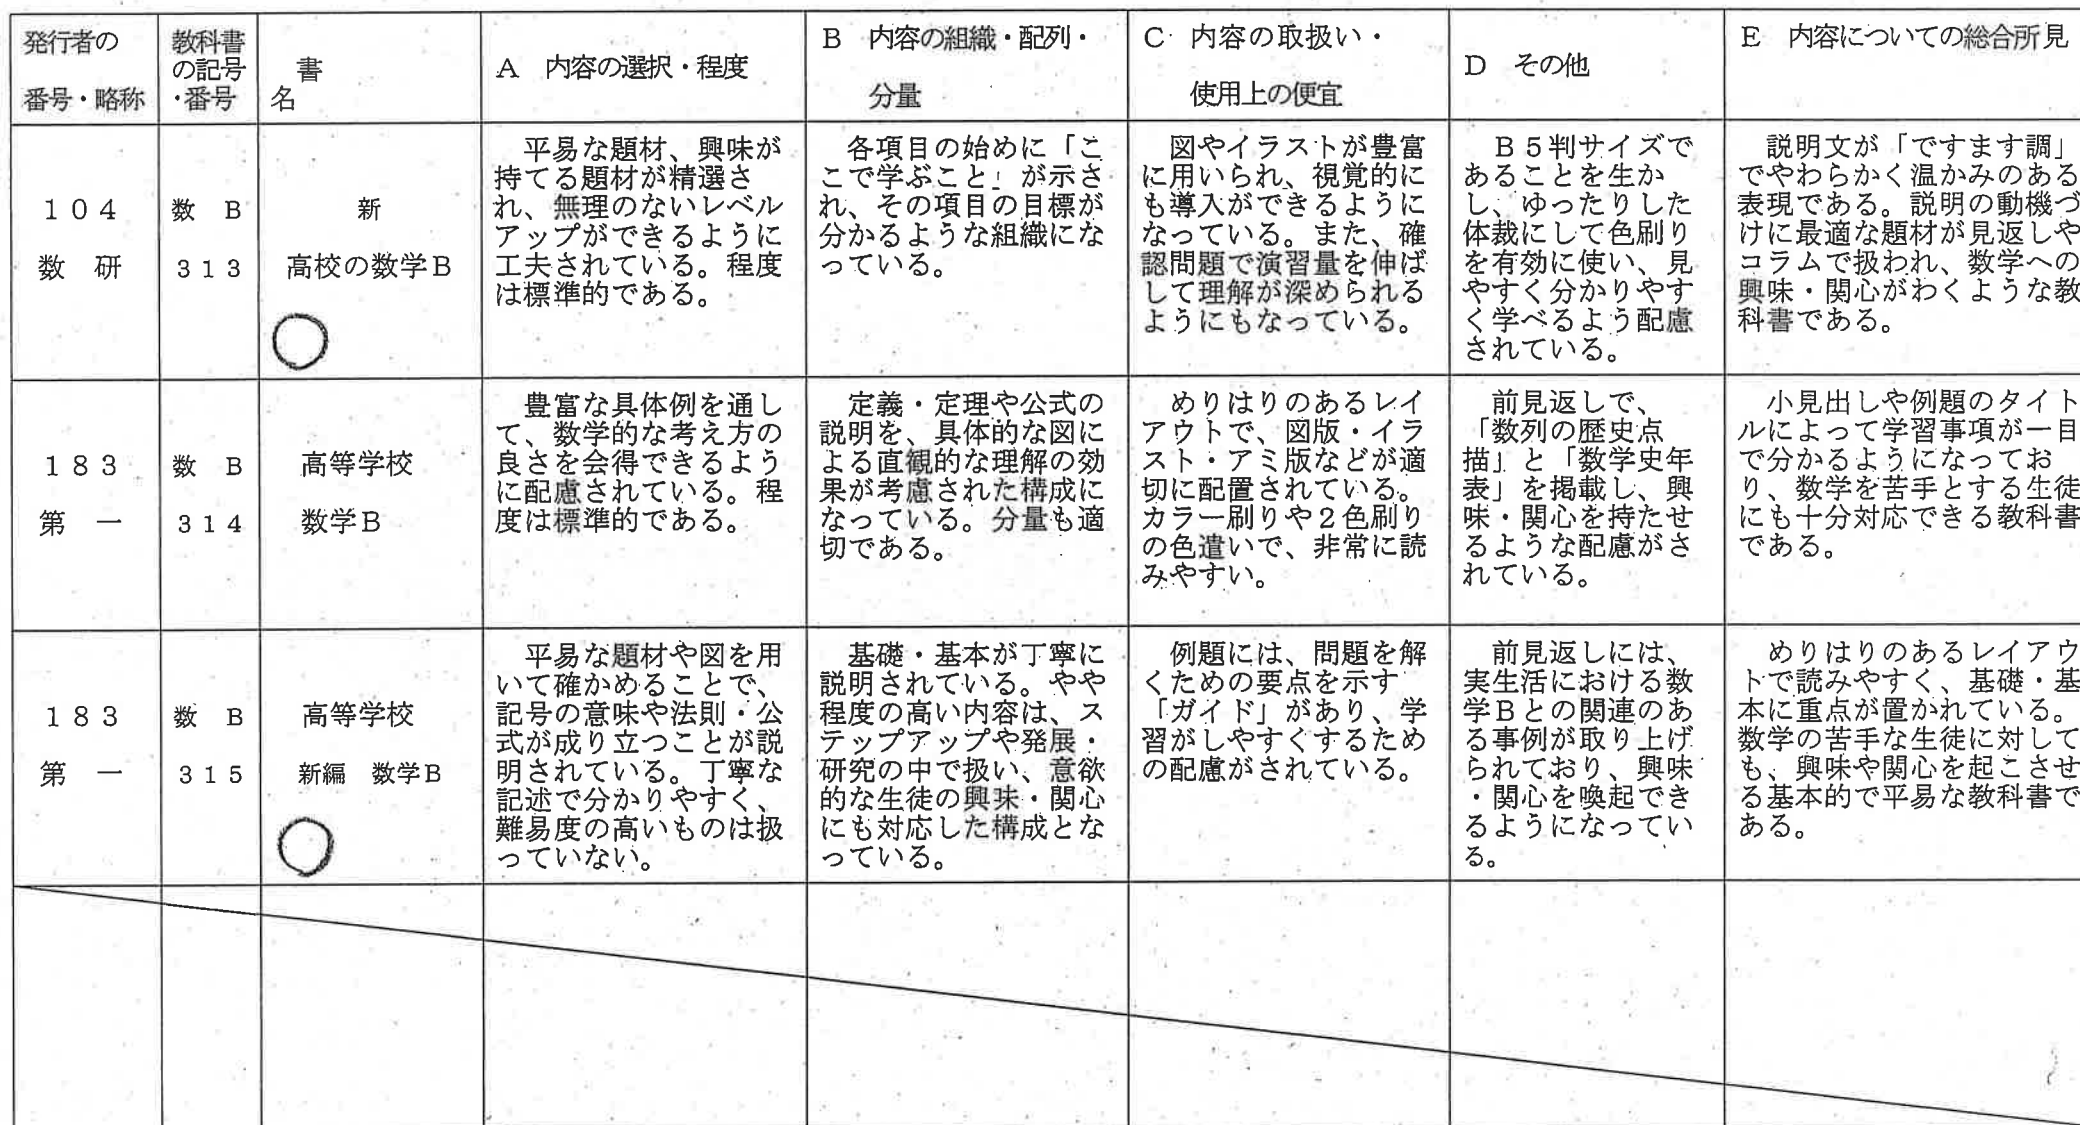 発行者の
番号・略称
教科書
の記号
・番号
書
名
A 内容の選択・程度
B 内容の組織・配列・
分量
C 内容の取扱い・
使用上の便宜
D その他
E 内容についての総合所見
104
数 研
数 B
313
新
高校の数学B
平易な題材、興味が
持てる題材が精選さ
れ、無理のないレベル
アップができるように
工夫されている。程度
は標準的である。
各項目の始めに「こ
こで学ぶこと」が示さ
れ、その項目の目標が
分かるような組織にな
っている。
図やイラストが豊富
に用いられ、視覚的に
も導入ができるように
なっている。また、確
認問題で演習量を伸ば
して理解が深められる
ようにもなっている。
B5判サイズで
あることを生か
し、ゆったりした
体裁にして色刷り
を有効に使い、見
やすく分かりやす
く学べるよう配慮
されている。
説明文が「ですます調」
でやわらかく温かみのある
表現である。説明の動機づ
けに最適な題材が見返しや
コラムで扱われ、数学への
興味・関心がわくような教
科書である。
183
第 一
数 B
314
高等学校
数学B
豊富な具体例を通し
て、数学的な考え方の
良さを会得できるよう
に配慮されている。程
度は標準的である。
定義・定理や公式の
説明を、具体的な図に
よる直観的な理解の効
果が考慮された構成に
なっている。分量も適
切である。
めりはりのあるレイ
アウトで、図版・イラ
スト・アミ版などが適
切に配置されている。
カラー刷りや2色刷り
の色遣いで、非常に読
みやすい。
前見返しで、
「数列の歴史点
描」と「数学史年
表」を掲載し、興
味・関心を持たせ
るような配慮がさ
れている。
小見出しや例題のタイト
ルによって学習事項が一目
で分かるようになってお
り、数学を苦手とする生徒
にも十分対応できる教科書
である。
183
第 一
数 B
315
高等学校
新編 数学B
平易な題材や図を用
いて確かめることで、
記号の意味や法則・公
式が成り立つことが説
明されている。丁寧な
記述で分かりやすく、
難易度の高いものは扱
っていない。
基礎・基本が丁寧に
説明されている。やや
程度の高い内容は、ス
テップアップや発展・
研究の中で扱い、意欲
的な生徒の興味・関心
にも対応した構成とな
っている。
例題には、問題を解
くための要点を示す
「ガイド」があり、学
習がしやすくするため
の配慮がされている。
前見返しには、
実生活における数
学Bとの関連のあ
る事例が取り上げ
られており、興味
・関心を喚起でき
るようになってい
る。
めりはりのあるレイアウ
トで読みやすく、基礎・基
本に重点が置かれている。
数学の苦手な生徒に対して
も、興味や関心を起こさせ
る基本的で平易な教科書で
ある。